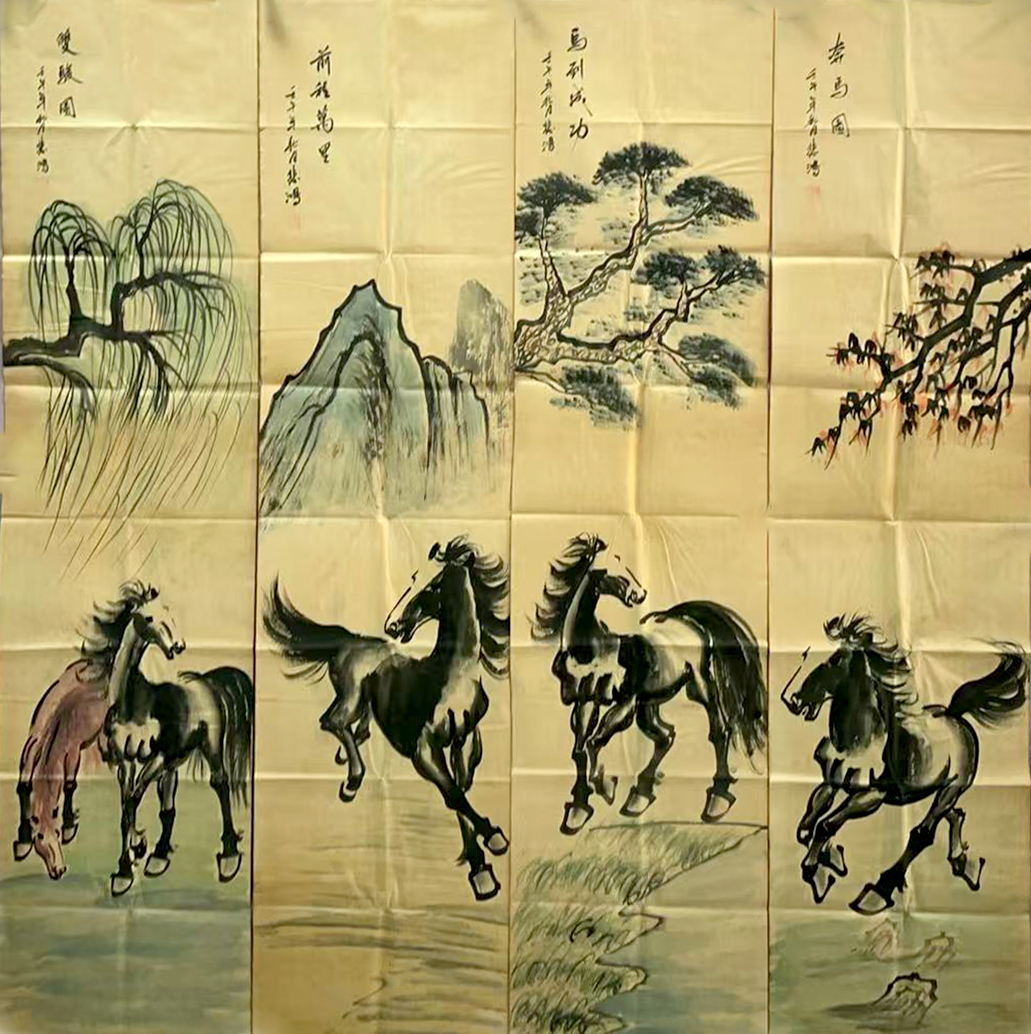 奔馬圖
壬午年秋月悲鴻
馬到成功
壬午年秋月悲鴻
前程萬里
壬午年秋月悲鴻
雙駿圖
壬午年秋月悲鴻